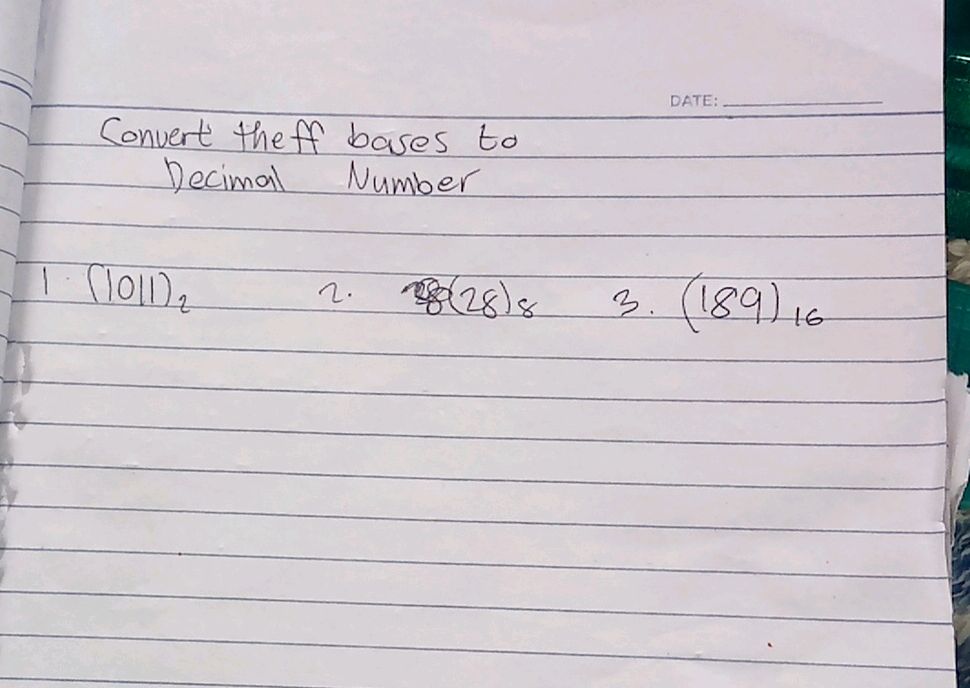 DATE:
Convert the ff bases to
Decimal Number
1. (1011)2 2. (28)8 3. (189)16